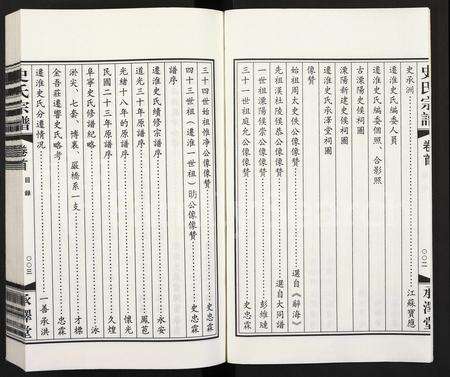 史氏宗譜
卷首
〇〇二
承澤堂
史承洲……江蘇寶應
遷淮史氏編委人員
遷淮史氏編委個照、合影照
古溧陽史侯祠圖
溧陽新建史侯祠圖
遷淮史氏承澤堂祠圖
像贊
始祖周太史佚公像像贊……選自《辭海》
先祖漢杜陵侯恭公像像贊……選自大同譜
一世祖溧陽侯崇公像像贊……彭維璉
三十一世祖庭允公像像贊……史忠霖
三十四世始祖惟淨公像像贊……史忠霖
四十三世祖（遷淮一世祖）勖公像像贊……史忠霖
譜序
遷淮史氏續修宗譜序……永安
道光三十年原譜序……鳳苞
光緒十八年的原譜序……懷光
民國二十三年原譜序……久煌
阜寧史氏修譜紀略……泳
淤尖、七套、博裏、嚴橋系一支……才標
金吾莊遷響史氏略考……忠霖
遷淮史氏分遷情況……一善承洪
史氏宗譜
卷首
目錄
〇〇三
承澤堂